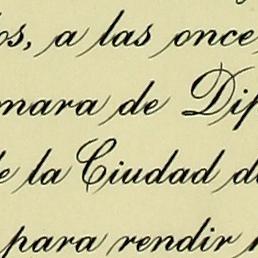 os, a las once
mara de Dip
e la Ciudad d
para rendir